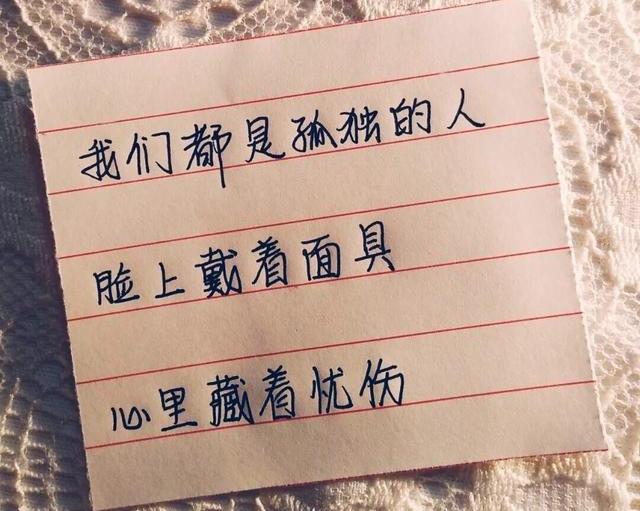 我们都是孤独的人
脸上戴着面具
心里藏着忧伤